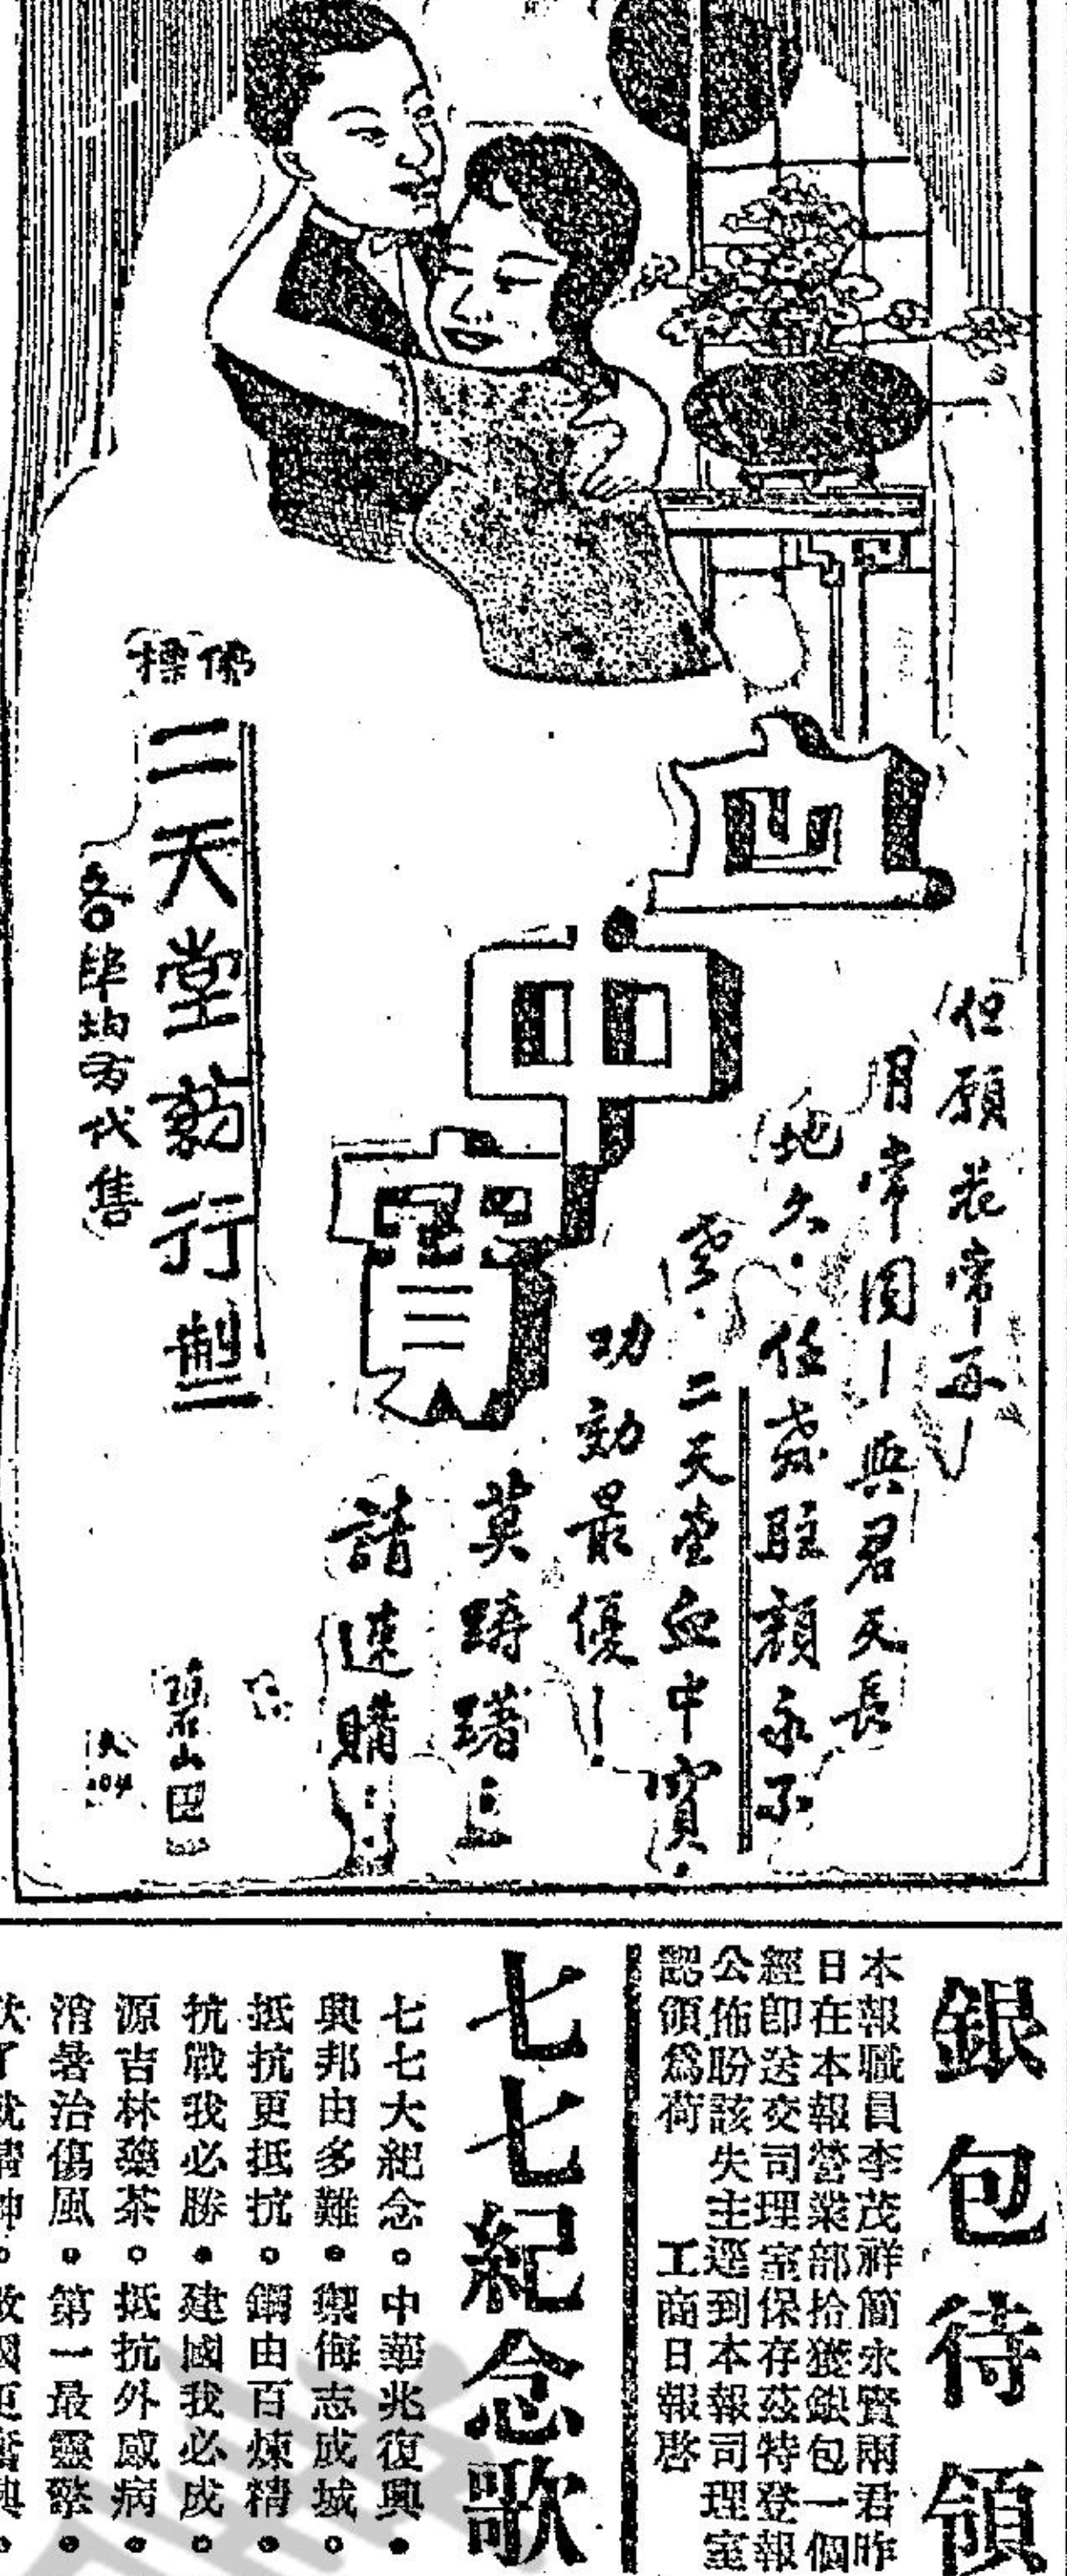 血中寶
但願花常
月常圓—與君天長
地久.任歲駐顏永不
零.
二天堂血中寶.
功効最優!
莫躊躇
請速購
佛標
二天堂葯行製
各埠均有代售
銀包待領
本報職員李茂祥簡永賢兩君昨
日在本報營業部拾獲銀包一個
經即送交司理室保存茲特登報
公佈盼該失主逕到本報司理室
認領爲荷 工商日報啓
七七紀念歌
七七大紀念。中華兆復興.
興邦由多難.禦侮志成城。
抵抗更抵抗。鋼由百煉精.
抗戰我必勝.建國我必成。
源吉林藥茶。抵抗外感病.
消暑治傷風.第一最靈騐.